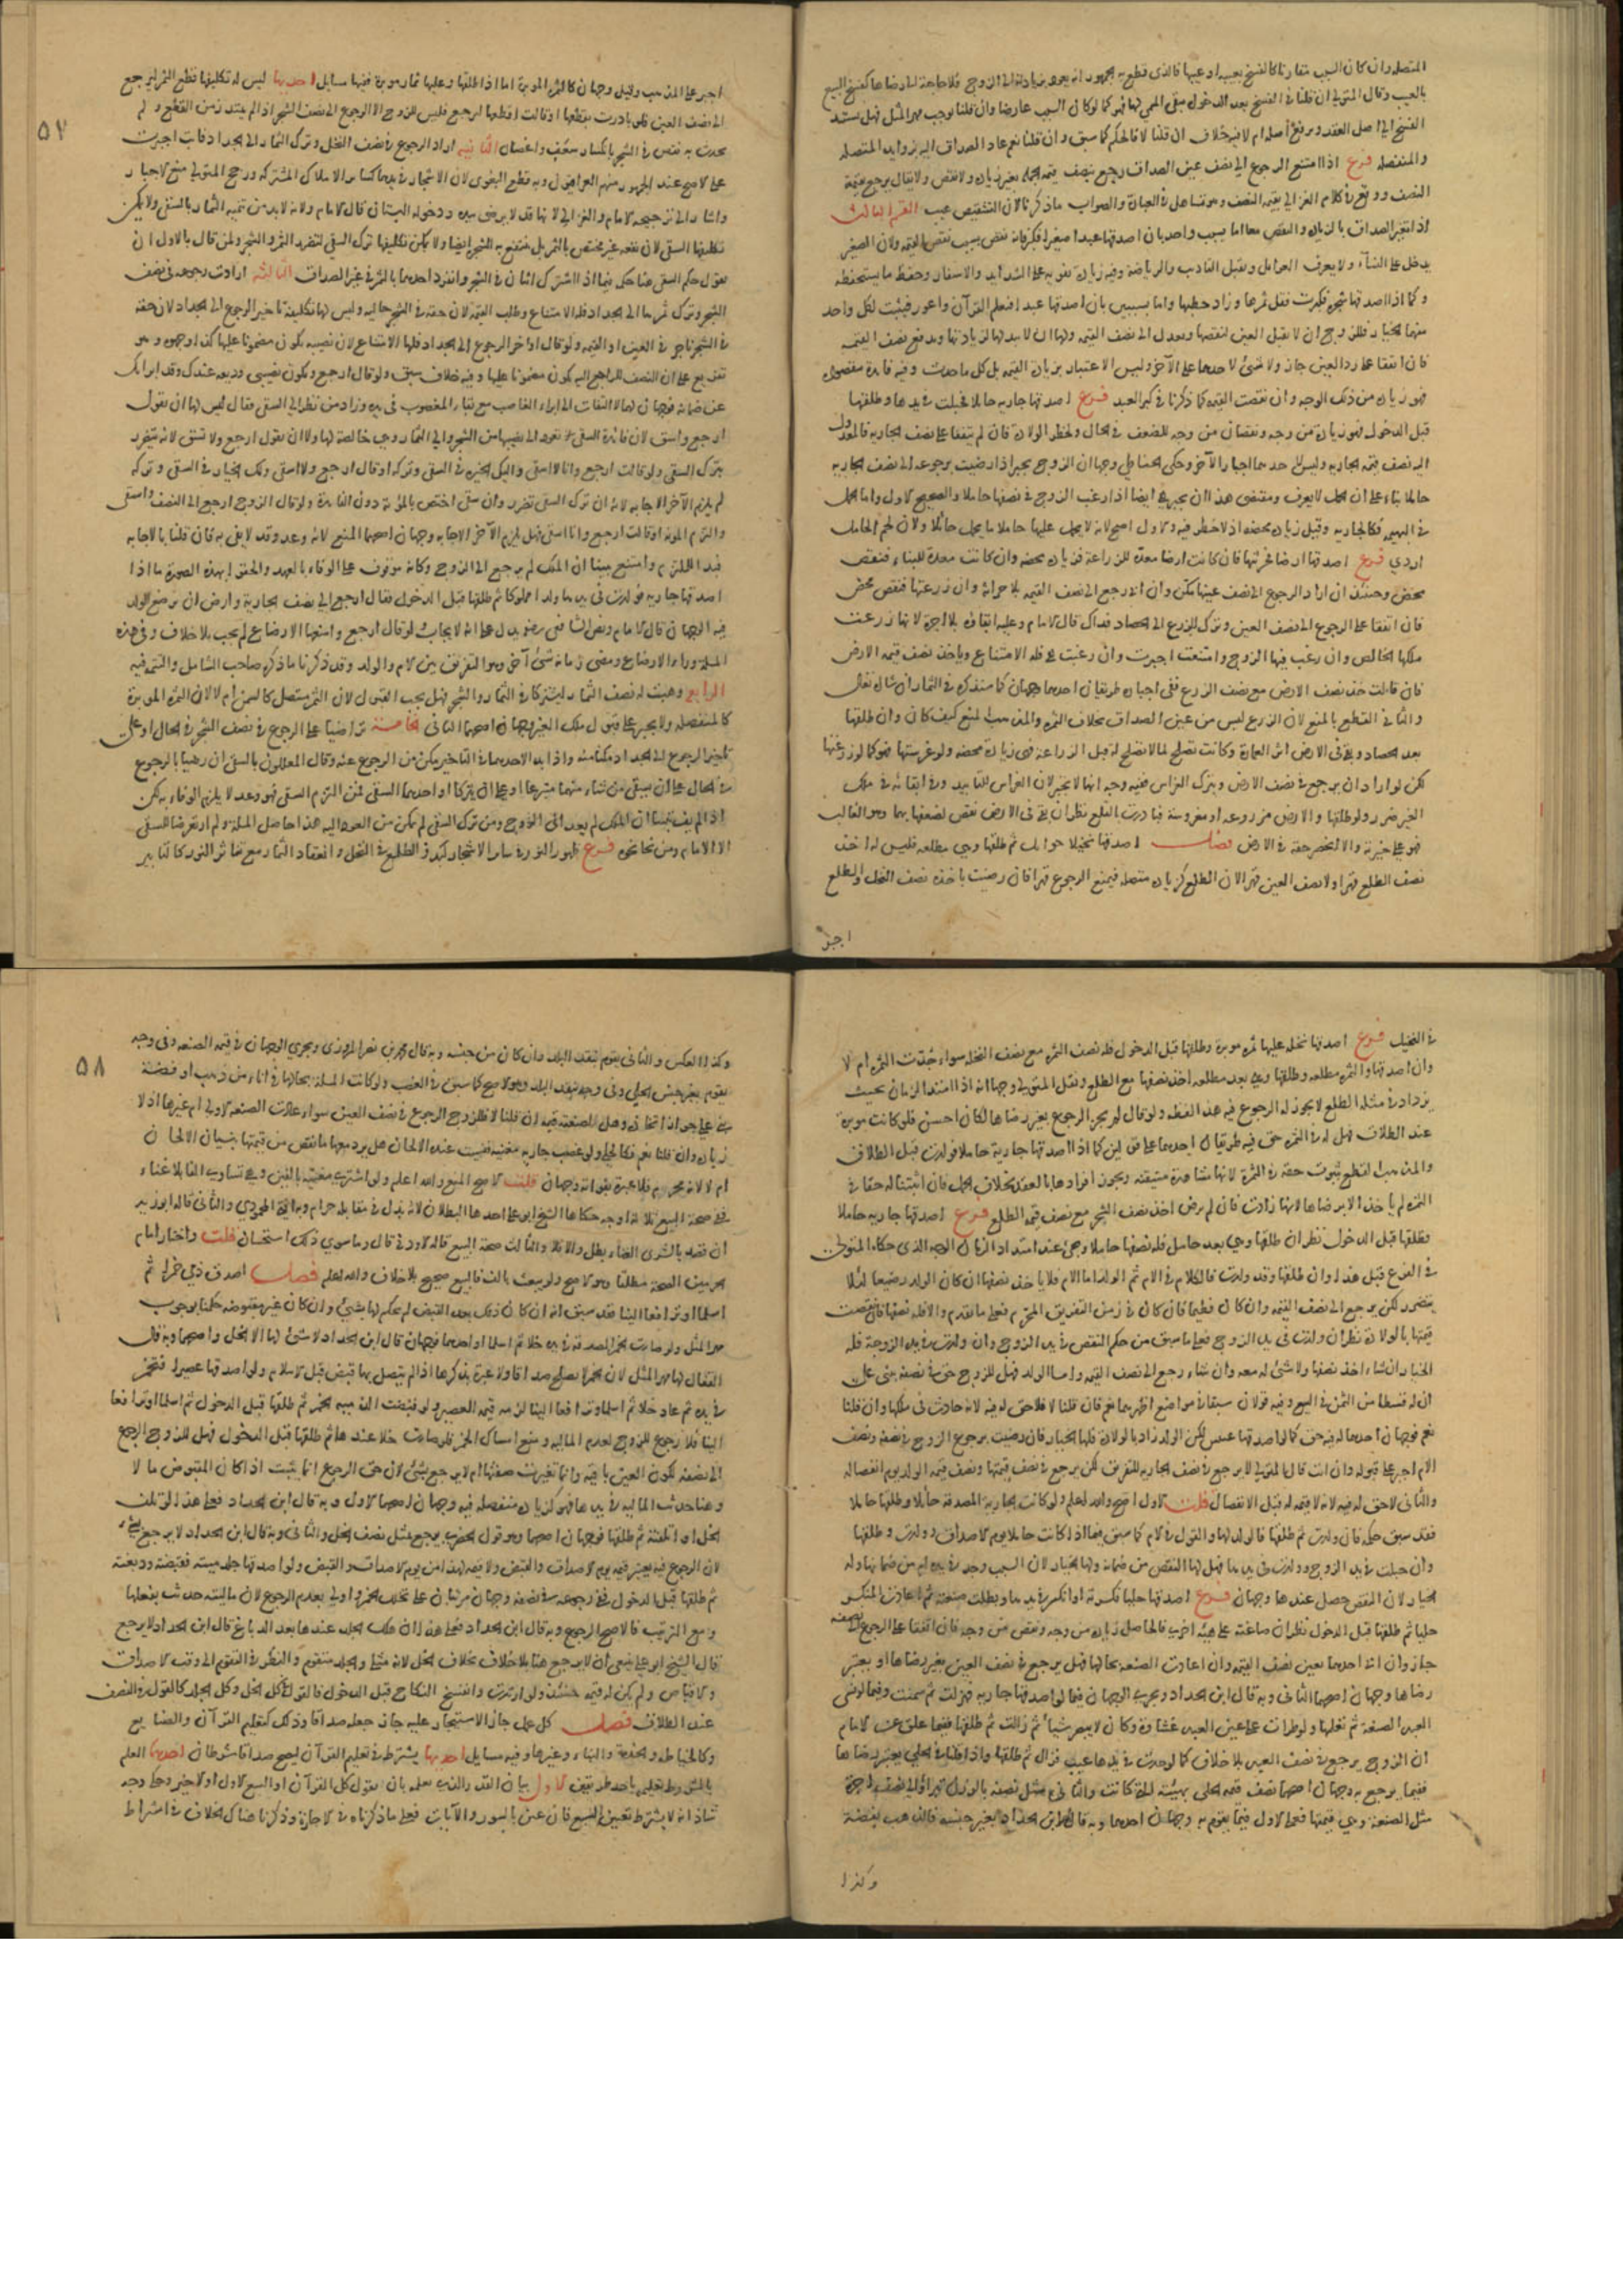 المتصله وان كان السبب مقارنا كالفسخ بعيبه او عيبها فالذى قطع به الجمهور انه يعود بزيادته الى الزوج ولا حاجة الى رضاها كفسخ البيع
بالعيب وقال المتولى ان قلنا فى الفسخ بعد الدخول يبقى المسمى لها فهو كما لو كان السبب عارضا وان قلنا وجب مهر المثل فهل يستند
الفسخ الى اصل العقد ويرفع اصله ام لا فيه خلاف ان قلنا لا فالحكم كما سبق وان قلنا نعم عاد الصداق اليه بزوايد المتصله
والمنفصله فرع اذا امتنع الرجوع الى نصف عين الصداق رجع بنصف قيمة الجملة بغير زيادة ولا نقص ولا يقال يرجع بقيمة
النصف ووقع فى كلام الغزالى بقيمة النصف وهو تساهل فى العبارة والصواب ما ذكرنا لان التشقيص عيب القسم الثالث
اذا تغير الصداق بالزيادة والنقص معا اما بسبب واحد بان اصدقها عبدا صغيرا فكبر فانه نقص بسبب نقص القيمة ولان الصغير
يدخل على النساء ولا يعرف الغوائل ويقبل التاديب والرياضة وفيه زيادة بقوته على الشدايد والاسفار وحفظ ما يستحفظه
وكما اذا اصدقها شجرة فكبرت فقل ثمرها وزاد حطبها واما بسببين بان اصدقها عبدا فتعلم القرآن واعور فيثبت لكل واحد
منهما الخيار فللزوج ان لا يقبل العين لنقصها ويعدل الى نصف القيمة ولها ان لا تبذلها لزيادتها وتدفع نصف القيمة
فان اتفقا على رد العين جاز ولا شىء لاحدهما على الآخر وليس الاعتبار بزيادة القيمة بل كل ما حدث وفيه فايدة مقصودة
فهو زيادة من ذلك الوجه وان نقصت القيمة كما ذكرنا فى كبر العبد فرع اصدقها جارية حايلا فحبلت فى يدها وطلقها
قبل الدخول فهو زيادة من وجه ونقصان من وجه للضعف فى الحال ولخطر الولادة فان لم يتفقا على نصف الجارية فالمعدول
اليه نصف قيمة الجارية وليس لاحدهما اجبار الآخر وحكى الحناطى وجها ان الزوج يجبر اذا رضيت برجوعه الى نصف الجارية
حاملا بناء على ان الحمل لا يعرف ومقتضى هذا ان يجبر هى ايضا اذا رغب الزوج فى نصفها حاملا والصحيح الاول واما الحمل
فى البهيمة فكالجارية وقيل زيادة محضة اذ لا خطر فيه والاول اصح لانه لا يحمل عليها حاملا ما يحمل حائلا ولان لحم الحامل
اردى فرع اصدقها ارضا فحرثتها فان كانت ارضا معدة للزراعة فزيادة محضة وان كانت معدة للبناء فنقص
محض وحينئذ ان اراد الرجوع الى نصف عينها مكن وان ابى رجع الى نصف القيمة بلا حراثة وان زرعتها فنقص محض
فان اتفقا على الرجوع الى نصف العين وترك الزرع الى الحصاد فذاك قال الامام وعليه ابقاؤه بلا اجرة لانها زرعت
ملكها الخالص وان رغب فيها الزوج وامتنعت اجبرت وان رغبت هى فله الامتناع وياخذ نصف قيمة الارض
فان قالت خذ نصف الارض مع نصف الزرع ففى اجباره طريقان احدهما وجهان كما سنذكره فى الثمار ان شاء الله تعالى
والثانى القطع بالمنع لان الزرع ليس من عين الصداق بخلاف الثمرة والمذهب المنع كيف كان وان طلقها
بعد الحصاد وبقى فى الارض اثر العمارة وكانت تصلح لما لا تصلح له قبل الزراعة فهى زيادة محضة ولو غرستها فهو كما لو زرعتها
لكن لو اراد ان يرجع فى نصف الارض ويترك الغراس ففيه وجه انها لا تجبر لان الغراس للتابيد وفى ابقائه فى ملك
الغير ضرر ولو طلقها والارض مزروعة او مغروسة فبادرت بالقلع نظر ان بقى فى الارض نقص لضعفها بهما وهو الغالب
فهو على خيرته والا انحصر حقه فى الارض فصل اصدقها نخيلا حوائل ثم طلقها وهى مطلعة فليس له اخذ
نصف الطلع قهرا ولا نصف العين قهرا لان الطلع كزيادة متصلة فيمنع الرجوع قهرا فان رضيت باخذه نصف النخل والطلع
اجبر
٥٧
اجبر على المذهب وقيل وجهان كالثمرة المؤبرة اما اذا طلقها وعليها ثمار مؤبرة ففيها مسايل احدها ليس له تكليفها قطع الثمر ليرجع
الى نصف العين فلو بادرت بقطعها او قالت اقطعها ليرجع فليس للزوج الا الرجوع الى نصف الشجر اذا لم يمتد زمن القطع ولم
يحدث به نقص فى الشجر بانكسار سعف واغصان الثانية اراد الرجوع فى نصف النخل وترك الثمار الى الجداد فابت اجبرت
على الاصح عند الجمهور منهم العراقيون وبه قطع البغوى لان الاشجار فى يدهما كسائر الاملاك المشتركة ورجح المتولى منع الاجبار
واشار الى ترجيحه الامام والغزالى لانها قد لا ترضى بيده ودخوله البستان قال الامام ولانه لا بد من تنمية الثمار بالسقى ولا يمكن
تكليفها السقى لان نفعه غير مختص بالثمر بل ينتفع به الشجر ايضا ولا يمكن تكليفها ترك السقى لتضرر الثمر والشجر ولمن قال بالاول ان
يقول حكم السقى هنا حكمه فيما اذا اشترك اثنان فى الشجر وانفرد احدهما بالثمر فى غير الصداق الثالثة ارادت رجوعه فى نصف
الشجر وترك ثمرها الى الجداد فله الامتناع وطلب القيمة لان حقه فى الشجر خالية وليس لها تكليفه تاخير الرجوع الى الجداد لان حقه
فى الشجر ناجز فى العين او القيمة ولو قال اؤخر الرجوع الى الجداد فلها الامتناع لان نصيبه يكون مضمونا عليها كذا وجهوه وهو
تفريع على ان النصف الراجع اليه يكون مضمونا عليها وفيه خلاف سبق ولو قال ارجع ويكون نصيبى وديعة عندك وقد ابرأتك
عن ضمانه فوجهان لهما التفات الى ابراء الغاصب مع بقاء المغصوب فى يده وزاد من نظر الى السقى فقال ليس لها ان تقول
ارجع واسق لان فائدة السقى تعود الى نصيبها من الشجر والى الثمار وهى خالصة لها ولا ان تقول ارجع ولا تسق لانه يتضرر
بترك السقى ولو قالت ارجع وانا لا اسقى واليك الخيرة فى السقى وتركه او قال ارجع ولا اسقى ولك الخيار فى السقى وتركه
لم يلزم الآخر الاجابة لانه ان ترك السقى تضرر وان سقى اختص بالمؤنة دون الفايدة ولو قال الزوج ارجع الى النصف واسقى
والتزم المؤنة او قالت ارجع وانا اسقى فهل يلزم الآخر الاجابة وجهان اصحهما المنع لانه وعد وقد لا يفى به فان قلنا بالاجابة
فبدا للملتزم وامتنع تبينا ان الملك لم يرجع الى الزوج وكانه موقوف على الوفاء بالعهد والحق بهذه الصورة ما اذا
اصدقها جارية فولدت فى يدها ولدا مملوكا ثم طلقها قبل الدخول فقال ارجع الى نصف الجارية وارضى ان ترضع الولد
فيه الوجهان قال الامام ونص الشافعى رضه يدل على انه لا يجاب ولو قال ارجع وامنعها الارضاع لم يجب بلا خلاف وفى هذه
المسئلة وراء الارضاع ومضى زمانه شىء آخر وهو التفريق بين الام والولد وقد ذكرنا ما ذكره صاحب الشامل والتتمة فيه
الرابعة وهبت له نصف الثمار ليشتركا فى الثمار والشجر فهل يجب القبول لان الثمر متصل كالسمن ام لا لان الثمرة المؤبرة
كالمنفصلة ولا يجبر على قبول ملك الغير وجهان اصحهما الثانى الخامسة تراضيا على الرجوع فى نصف الشجر فى الحال او على
تاخير الرجوع الى الجداد مكنا منه واذا بدا لاحدهما فى التاخير مكن من الرجوع عنه وقال المعللون بالسقى ان رضيا بالرجوع
فى الحال على ان يسقى من شاء منهما متبرعا او على ان يتركا او احدهما السقى فمن التزم السقى فهو وعد لا يلزم الوفاء به لكن
اذا لم يف تبينا ان الملك لم يعد الى الزوج ومن ترك السقى لم يمكن من العود اليه هذا حاصل المسئلة ولم ار تعرضا للسقى
الا للامام ومن نحا نحوه فرع ظهور النور فى سائر الاشجار كبدو الطلع فى النخل وانعقاد الثمار مع تناثر النور كالتابير
فى النخيل فرع اصدقها نخلة عليها ثمرة مؤبرة وطلقها قبل الدخول فله نصف الثمرة مع نصف النخلة سواء جذت الثمرة ام لا
وان اصدقها والثمرة مطلعة وطلقها وهى بعد مطلعة اخذ نصفها مع الطلع ونقل المتولى وجها انه اذا امتد الزمان بحيث
يزداد فى مثله الطلع لا يجوز له الرجوع فيه هذا لفظه ولو قال لم يجز الرجوع بغير رضاها لكان احسن فلو كانت مؤبرة
عند الطلاق فهل له فى الثمرة حق فيه طريقان احدهما على قولين كما اذا اصدقها جارية حاملا فولدت قبل الطلاق
والمذهب القطع بثبوت حقه فى الثمرة لانها مشاهدة متيقنة ويجوز افرادها بالعقد بخلاف الحمل فان اثبتنا له حقا فى
الثمرة لم ياخذ الا برضاها لانها زادت فان لم ترض اخذ نصف الشجر مع نصف قيمة الطلع فرع اصدقها جارية حاملا
وطلقها قبل الدخول نظر ان طلقها وهى بعد حامل فله نصفها حاملا ويجىء عند امتداد الزمان الوجه الذى حكاه المتولى
فى الفرع قبل هذا وان طلقها وقد ولدت فالكلام فى الام ثم الولد اما الام فلا ياخذ نصفها ان كان الولد رضيعا لئلا
يتضرر لكن يرجع الى نصف القيمة وان كان فطيما فان كان فى زمن التفريق المحرم فعلى ما تقدم والا فله نصفها فان نقصت
قيمتها بالولادة نظر ان ولدت فى يد الزوج فعلى ما سبق من حكم النقص فى يد الزوج وان ولدت فى يد الزوجة فله
الخيار ان شاء اخذ نصفها ولا شىء له معه وان شاء رجع الى نصف القيمة واما الولد فهل للزوج حق فى نصفه يبنى على
ان له قسطا من الثمن فى البيع وفيه قولان سبقا فى مواضع اظهرهما نعم فان قلنا لا فلا حق له فيه لانه حادث فى ملكها وان قلنا
نعم فوجهان احدهما له فيه حق كما لو اصدقها عينين لكن الولد زاد بالولادة فلها الخيار فان رضيت برجوع الزوج فى نصفه ونصف
الام اجبر على قبوله وان ابت قال المتولى لا يرجع فى نصف الجارية للتفريق لكن يرجع فى نصف قيمتها ونصف قيمة الولد يوم انفصاله
والثانى لا حق له فيه لانه لا قيمة له قبل الانفصال قلت الاول اصح والله اعلم ولو كانت الجارية المصدقة حائلا وطلقها حاملا
فقد سبق حكمه فان ولدت ثم طلقها فالولد لها والقول فى الام كما سبق فيما اذا كانت حاملا يوم الاصداق وولدت وطلقها
وان حبلت فى يد الزوج وولدت فى يدها فهل لها النقص من ضمانه ولها الخيار لان السبب وجد فى يده ام من ضمانها وله
الخيار لان النقص حصل عندها وجهان فرع اصدقها حليا فكسرته او انكسر فى يدها وبطلت صنعته ثم اعادت المنكسر
حليا ثم طلقها قبل الدخول نظر ان صاغته على هيئة اخرى فالحاصل زيادة من وجه ونقص من وجه فان اتفقا على الرجوع الى نصفه
جاز وان ابى احدهما تعين نصف القيمة وان اعادت الصنعة بحالها فهل يرجع فى نصف العين بغير رضاها او يعتبر
رضاها وجهان اصحهما الثانى وبه قال ابن الحداد ويجرى الوجهان فيما لو اصدقها جارية فهزلت ثم سمنت وفيما لو نسى
العبد الصنعة ثم تعلمها ولو طرأت على عين العبد غشاوة وكان لا يبصر شيأ ثم زالت ثم طلقها ففيما علق عن الامام
ان الزوج يرجع فى نصف العبد بلا خلاف كما لو حدث فى يدها عيب فزال ثم طلقها واذا قلنا فى الحلى يعتبر رضاها
ففيما يرجع به وجهان احدهما نصف قيمة الحلى بهيئته التى كانت والثانى مثل نصفه بالوزن تبرا والى نصف اجرة
مثل الصنعة وهى قيمتها فعلى الاول فيما يقوم به وجهان احدهما وبه قال ابن الحداد بغير جنسه فالذهب بفضة
وكذا
٥٨
وكذا العكس والثانى يقوم بنقد البلد وان كان من جنسه وبه قال محمد بن نصر المروزى ويجرى الوجهان فى قيمة الصنعة وفى وجه
يقوم بغير جنس الحلى وفى وجه بنقد البلد وهو الاصح كما سبق فى الغصب ولو كانت المسئلة بحالها فى اناء من ذهب او فضة
بنى على جواز اتخاذه وهل لصنعته قيمة ان قلنا لا فللزوج الرجوع فى نصف العين سواء عادت الصنعة الاولى ام غيرها اذ لا
زيادة وان قلنا نعم فكالحلى ولو غصب جارية مغنية فنسيت عنده الالحان هل يرد معها ما نقص من قيمتها بنسيان الالحان
ام لا لانه محرم فلا عبرة بفواته وجهان قلت الاصح المنع والله اعلم ولو اشترى مغنية بالفين وهى تساوى الفا بلا غناء
ففى صحة البيع ثلاثة اوجه حكاها الشيخ ابو على احدها البطلان لانه بذل فى مقابلة حرام وبه افتى المحمودى والثانى قاله ابو زيد
ان قصد بالشرى الغناء بطل والا فلا والثالث صحة البيع قاله الاودنى قال وما سوى ذلك استحسان قلت واختار امام
الحرمين الصحة مطلقا وهو الاصح ولو بيعت بالف فالبيع صحيح بلا خلاف والله اعلم فصل اصدق ذمى خمرا ثم
اسلما او ترافعا الينا فقد سبق انه ان كان ذلك بعد القبض لم نحكم لها بشىء وان كان غير مقبوضة حكمنا بوجوب
مهر المثل ولو صارت الخمر المصدقة فى يده خلا ثم اسلما او احدهما فوجهان قال ابن الحداد لا شىء لها الا الخل واصحهما وبه قال
القفال لها مهر المثل لان الخمر لا تصلح صداقا ولا عبرة بذكرها اذا لم يتصل بها قبض قبل الاسلام ولو اصدقها عصيرا فتخمر
فى يده ثم عاد خلا ثم اسلما وترافعا الينا لزمه قيمة العصير ولو قبضت الذمية الخمر ثم طلقها قبل الدخول ثم اسلما او ترافعا
الينا فلا رجوع للزوج لعدم المالية ومنع امساك الخمر فلو صارت خلا عندها ثم طلقها قبل الدخول فهل للزوج الرجوع
الى نصفه لكون العين باقية وانما تغيرت صفتها ام لا يرجع بشىء لان حق الرجوع انما يثبت اذا كان المقبوض مالا
وهنا حدثت المالية فى يدها فهو كزيادة منفصلة فيه وجهان اصحهما الاول وبه قال ابن الحداد فعلى هذا لو تلف
الخل او اتلفته ثم طلقها فوجهان احدهما وهو قول الخضرى يرجع بمثل نصف الخل والثانى وبه قال ابن الحداد لا يرجع بشىء
لان الرجوع فيه يعتبر قيمة يوم الاصداق والقبض ولا قيمة لهذا من يوم الاصداق والقبض ولو اصدقها جلد ميتة فقبضته ودبغته
ثم طلقها قبل الدخول ففى رجوعه فى نصفه وجهان مرتبان على تخلل الخمر واولى بعدم الرجوع لان ماليته حدثت بفعلها
ومع الترتيب فالاصح الرجوع وبه قال ابن الحداد فعلى هذا ان هلك الجلد عندها بعد الدباغ قال ابن الحداد لا يرجع
قال الشيخ ابو على ينبغى ان لا يرجع هنا بلا خلاف بخلاف الخل لانه مثلى والجلد متقوم والنظر فى التقويم الى وقت الاصداق
والاقباض ولم يكن له قيمة حينئذ ولو ارتدت وانفسخ النكاح قبل الدخول فالقول فى كل الخل وكل الجلد كالقول فى النصف
عند الطلاق فصل كل عمل جاز الاستيجار عليه جاز جعله صداقا وذلك كتعليم القرآن والصنايع
وكالخياطة والخدمة والبناء وغيرها وفيه مسايل احدها يشترط فى تعليم القرآن ليصح صداقا شرطان احدهما العلم
بالمشروط تعليمه باحد طريقين الاول بيان القدر الذى يعلمه بان يقول كل القرآن او السبع الاول او الاخير وحكى وجه
شاذ انه لا يشترط تعيين السبع فان عين بالسور والآيات فعلى ما ذكرناه فى الاجارة وذكرنا هناك الخلاف فى اشتراط